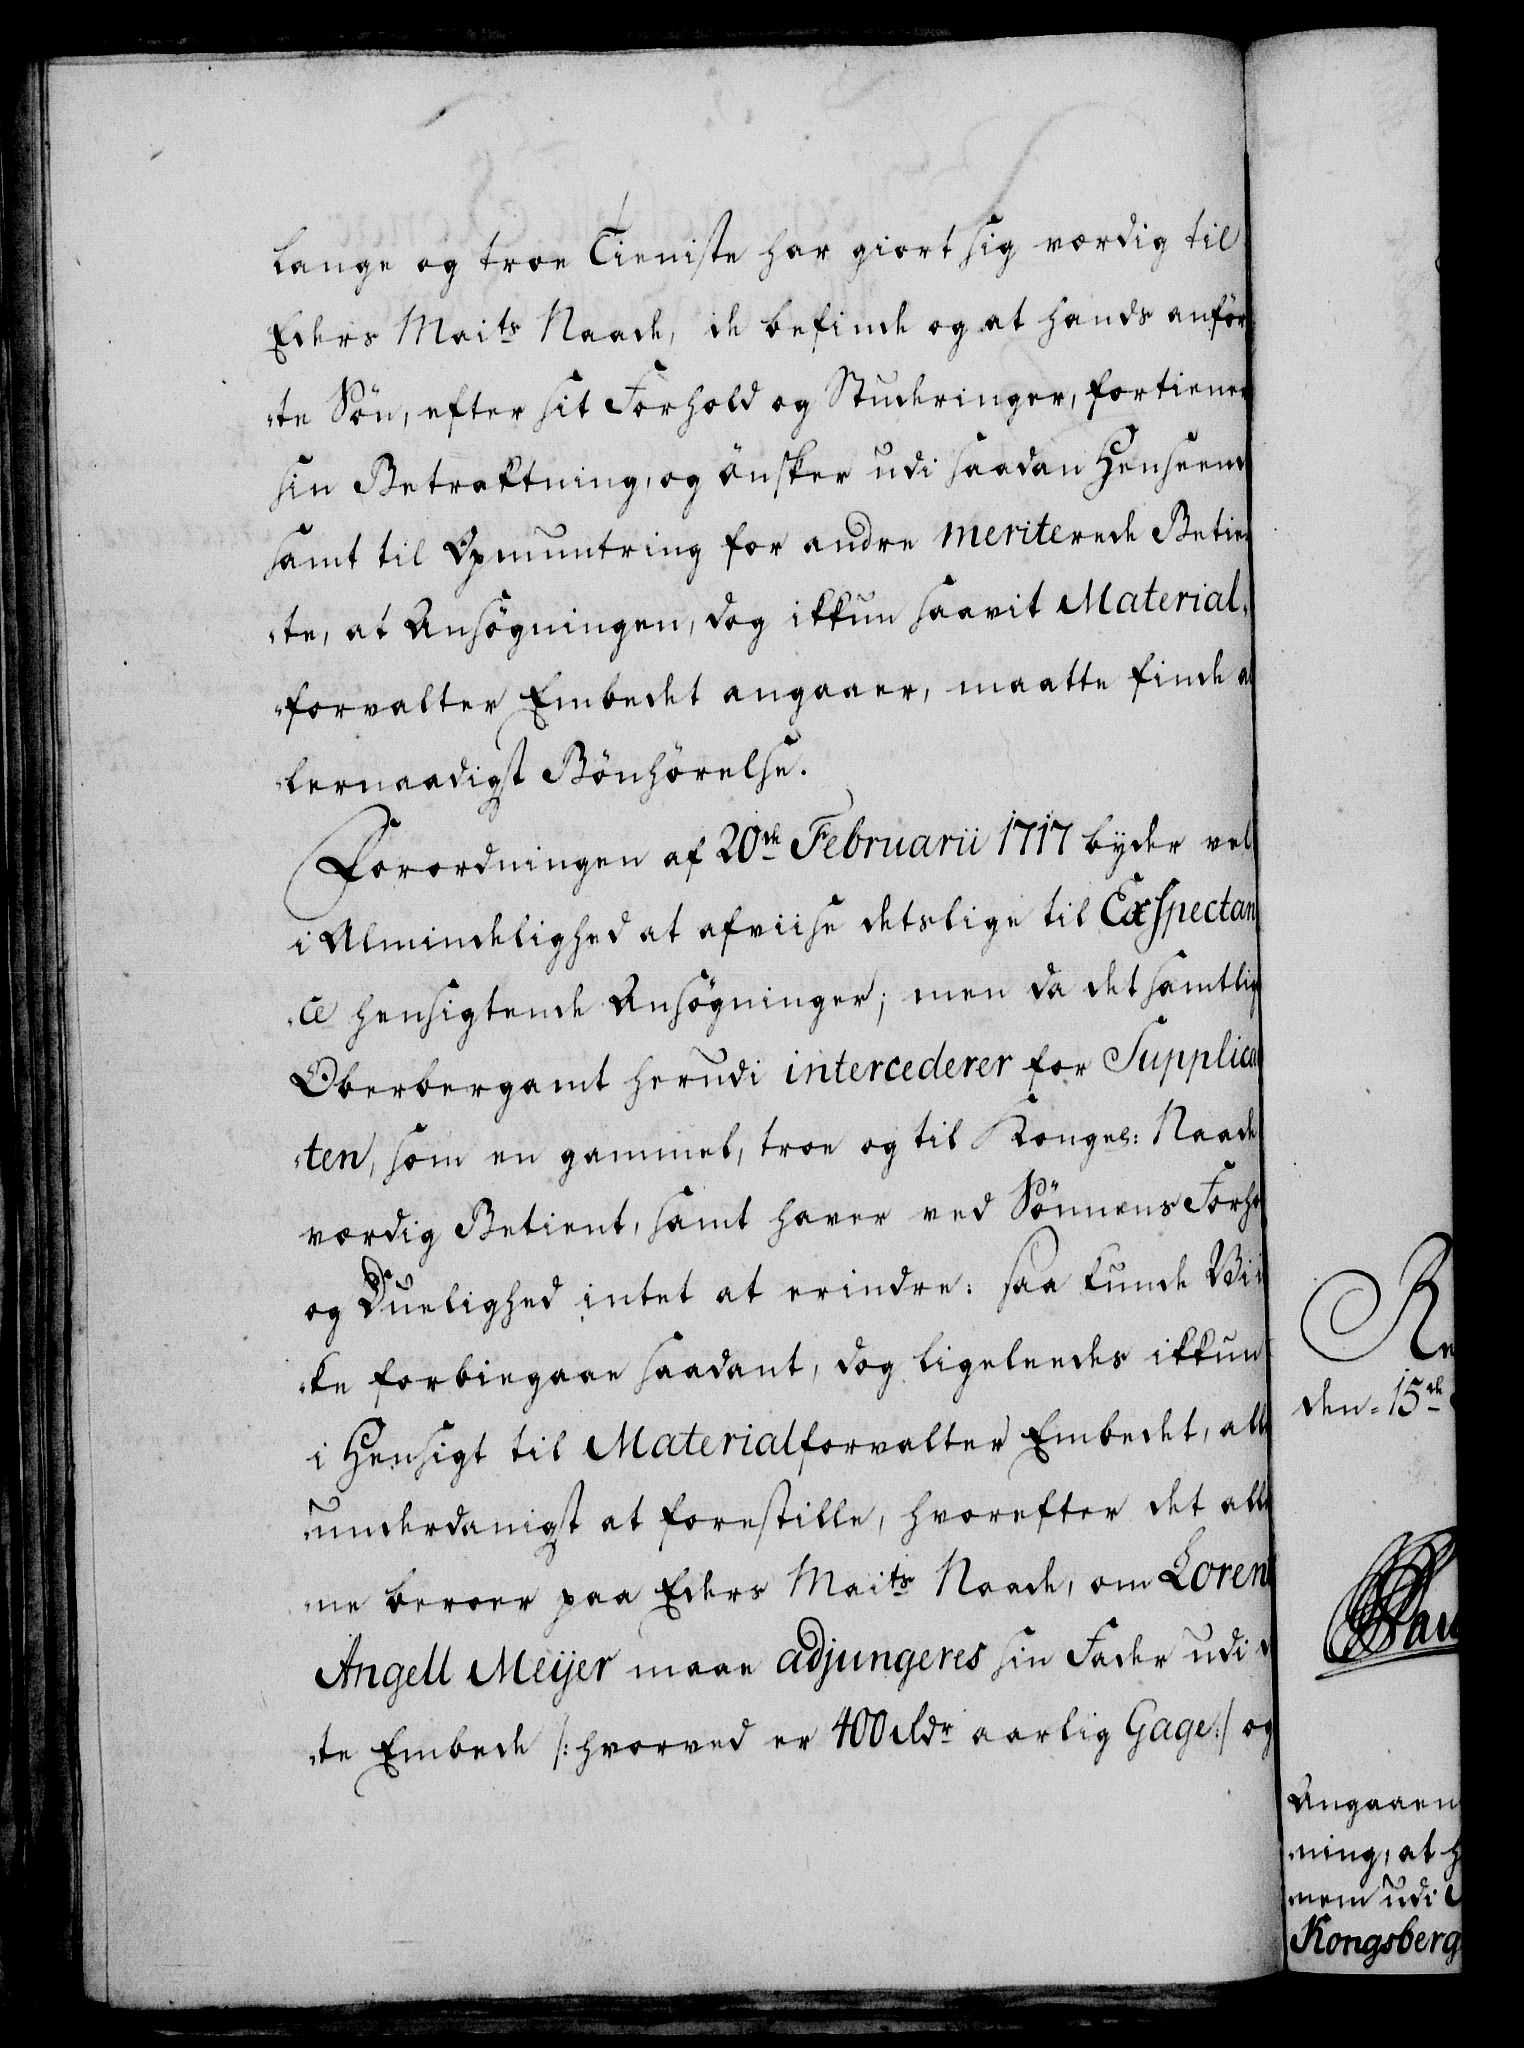 lange og troe Tieniste har giort sig værdig til
Eders Maits Naade, de befinde og at hands anför-
-te Sön, efter sit Forhold og Studeringer, fortiener
sin Betraktning, og önsker udi saadan Henseende
samt til Opmuntring for andre meriterede Betien-
-te, at Ansögningen, dog ikkun saavit Material-
-forvalter Embedet angaaer, maatte finde al-
-lernaadigst Bönhörelse.
Forordningen af 20de Februarii 1717 byder vel
i Almindelighed at afviise detslige til Exspectan-
-ce hensigtende Ansögninger; men da det samtlige
Oberbergamt herudi intercederer for Supplican-
-ten, som en gammel, troe og til Kongel: Naade
værdig Betient, samt haver ved Sönnens Forhold
og Duelighed intet at erindre: saa kunde Vi ik-
-ke forbiegaae saadant, dog ligeleedes ikkun
i Hensigt til Materialforvalter Embedet, aller-
-underdanigst at forestille, hvorefter det alle-
-ne beroer paa Eders Maits Naade, om Lorentz
Angell Meijer maae adjungeres sin Fader udi
-te Embede /: hvorved er 400 Rdr aarlig Gage :/ og
den 15de
Angaaen
-ning, at h
-nem udi
Kongsberg